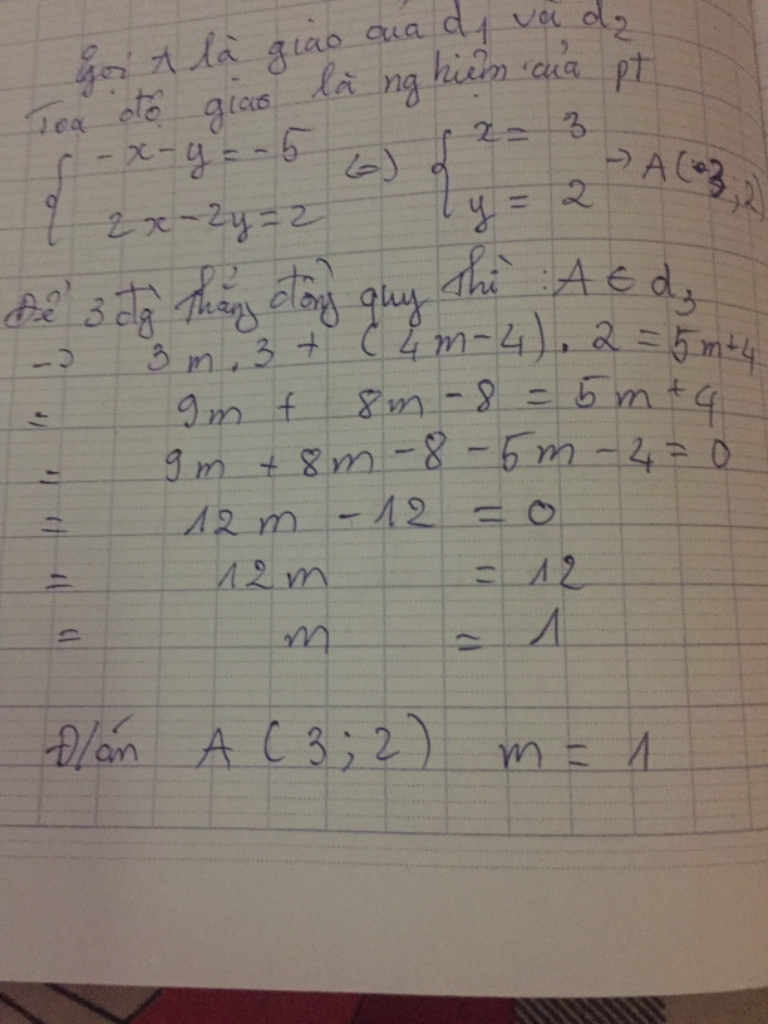 Gọi A là giao của d1 và d2
Toạ độ giao là nghiệm của pt
{ -x - y = -5 (=) { x = 3 → A(3;2)
2x - 2y = 2 y = 2
Để 3 đg thẳng đồng quy thì : A ∈ d3
→ 3m . 3 + (4m - 4) . 2 = 5m+4
= 9m + 8m - 8 = 5m + 4
= 9m + 8m - 8 - 5m - 4 = 0
= 12m - 12 = 0
= 12m = 12
= m = 1
Đ/án A (3 ; 2) m = 1